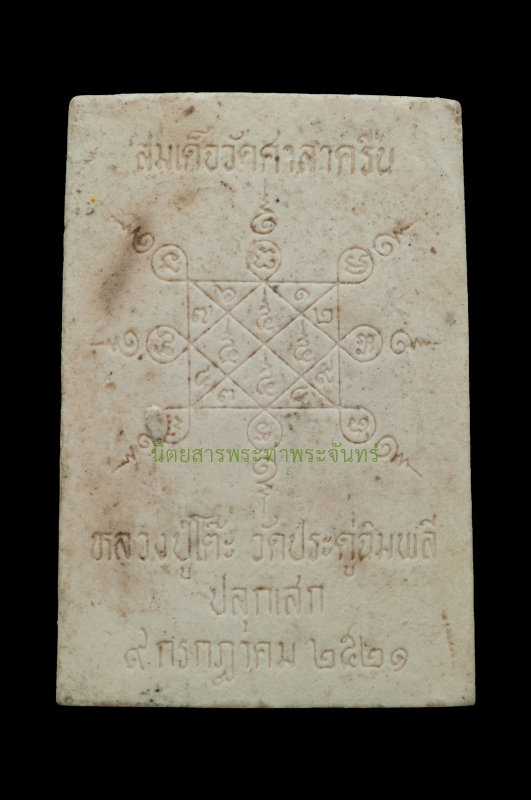 สมเด็จวัดศาลาครืน
๗ ๖ ๑ ๒
นิตยสารพระท่าพระจันทร์
หลวงปู่โต๊ะ วัดประดู่ฉิมพลี
ปลุกเสก
๙ กรกฎาคม ๒๕๒๑